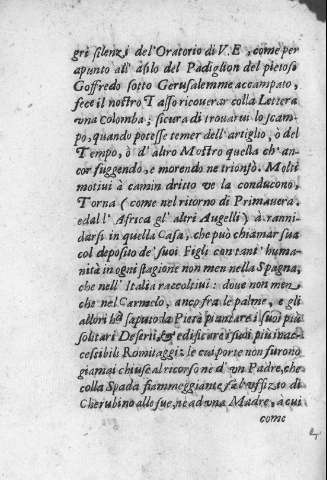 gri silenzi del'Oratorio di V.E, come per
apunto all' asilo del Padiglion del pietoso
Goffredo sotto Gerusalemme accampato,
fece il nostro Tasso ricouerar colla Lettera
vna Colomba; sicura di trouarui lo scam-
po, quando potesse temer dell'artiglio, ò del
Tempo, ò d' altro Mostro quella ch' an-
cor fuggendo, e morendo ne trionfò. Molti
motiui à camin dritto ve la conducono,
Torna (come nel ritorno di Primauera,
e dall' Africa gl' altri Augelli) à ranni-
darsi in quella Casa, che può chiamar sua
col deposito de' suoi Figli con tant' huma-
nità in ogni stagione non men nella Spagna,
che nell' Italia raccoltiui: doue non men
che nel Carmelo, anco frà le palme, e gli
allori hà saputo la Pietà piantare i suoi più
solitari Deserti, & edificare i suoi più inac-
cessibili Romitaggi: le cui porte non furono
giamai chiuse al ricorso nè d' vn Padre, che
colla Spada fiammeggiante fà l' vffizio di
Cherubino alle sue, nè ad vna Madre, à cui
come